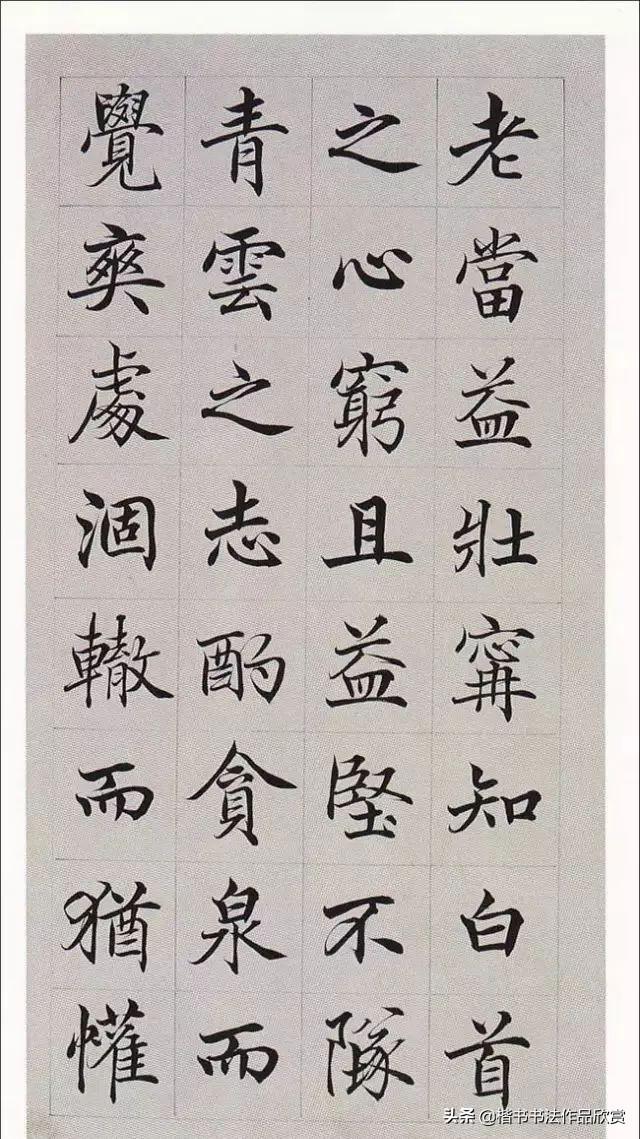 老當益壯寗知白首
之心窮且益堅不隊
青雲之志酌貪泉而
覺爽處涸轍而猶懽
头条 @楷书书法作品欣赏